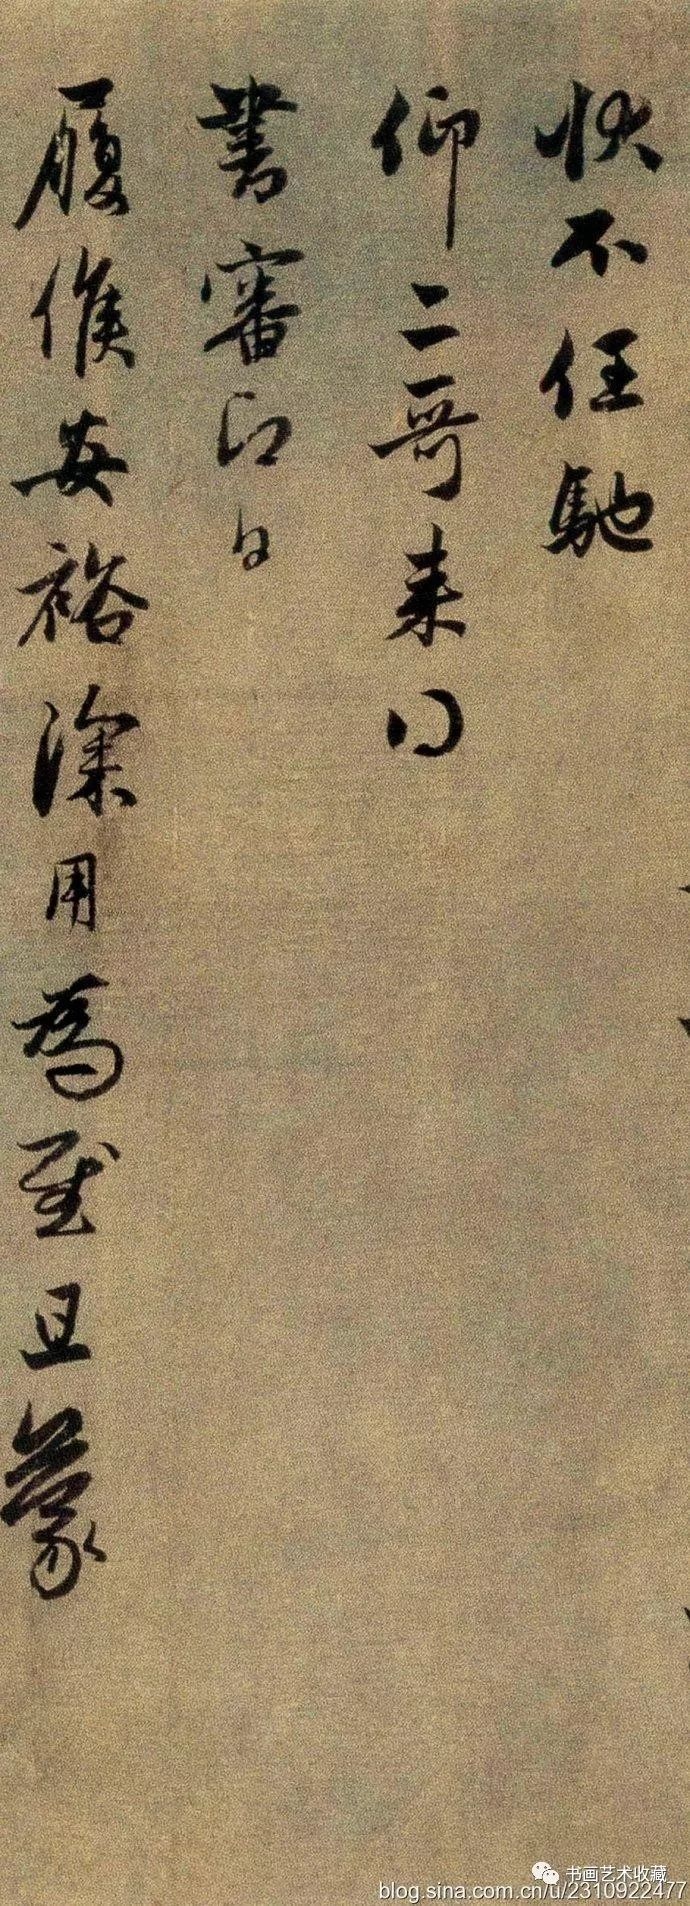 快不任馳
仰二哥来得
書審即日
履候安裕深用為慰且蒙
书画艺术收藏
blog.sina.com.cn/u/2310922477